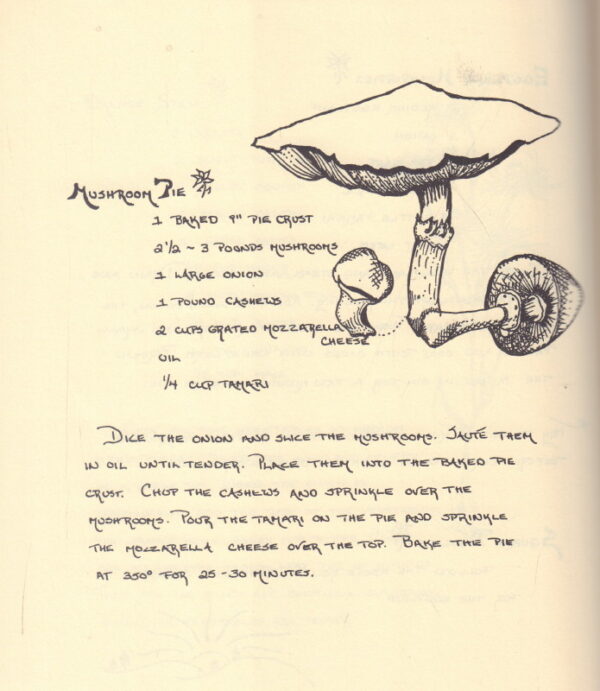 Mushroom Pie
1 BAKED 9" PIE CRUST
2 1/2 ~ 3 POUNDS MUSHROOMS
1 LARGE ONION
1 POUND CASHEWS
2 CUPS GRATED MOZZARELLA
CHEESE
OIL
1/4 CUP TAMARI
DICE THE ONION AND SLICE THE MUSHROOMS. SAUTÉ THEM
IN OIL UNTIL TENDER. PLACE THEM INTO THE BAKED PIE
CRUST. CHOP THE CASHEWS AND SPRINKLE OVER THE
MUSHROOMS. POUR THE TAMARI ON THE PIE AND SPRINKLE
THE MOZZARELLA CHEESE OVER THE TOP. BAKE THE PIE
AT 350° FOR 25-30 MINUTES.